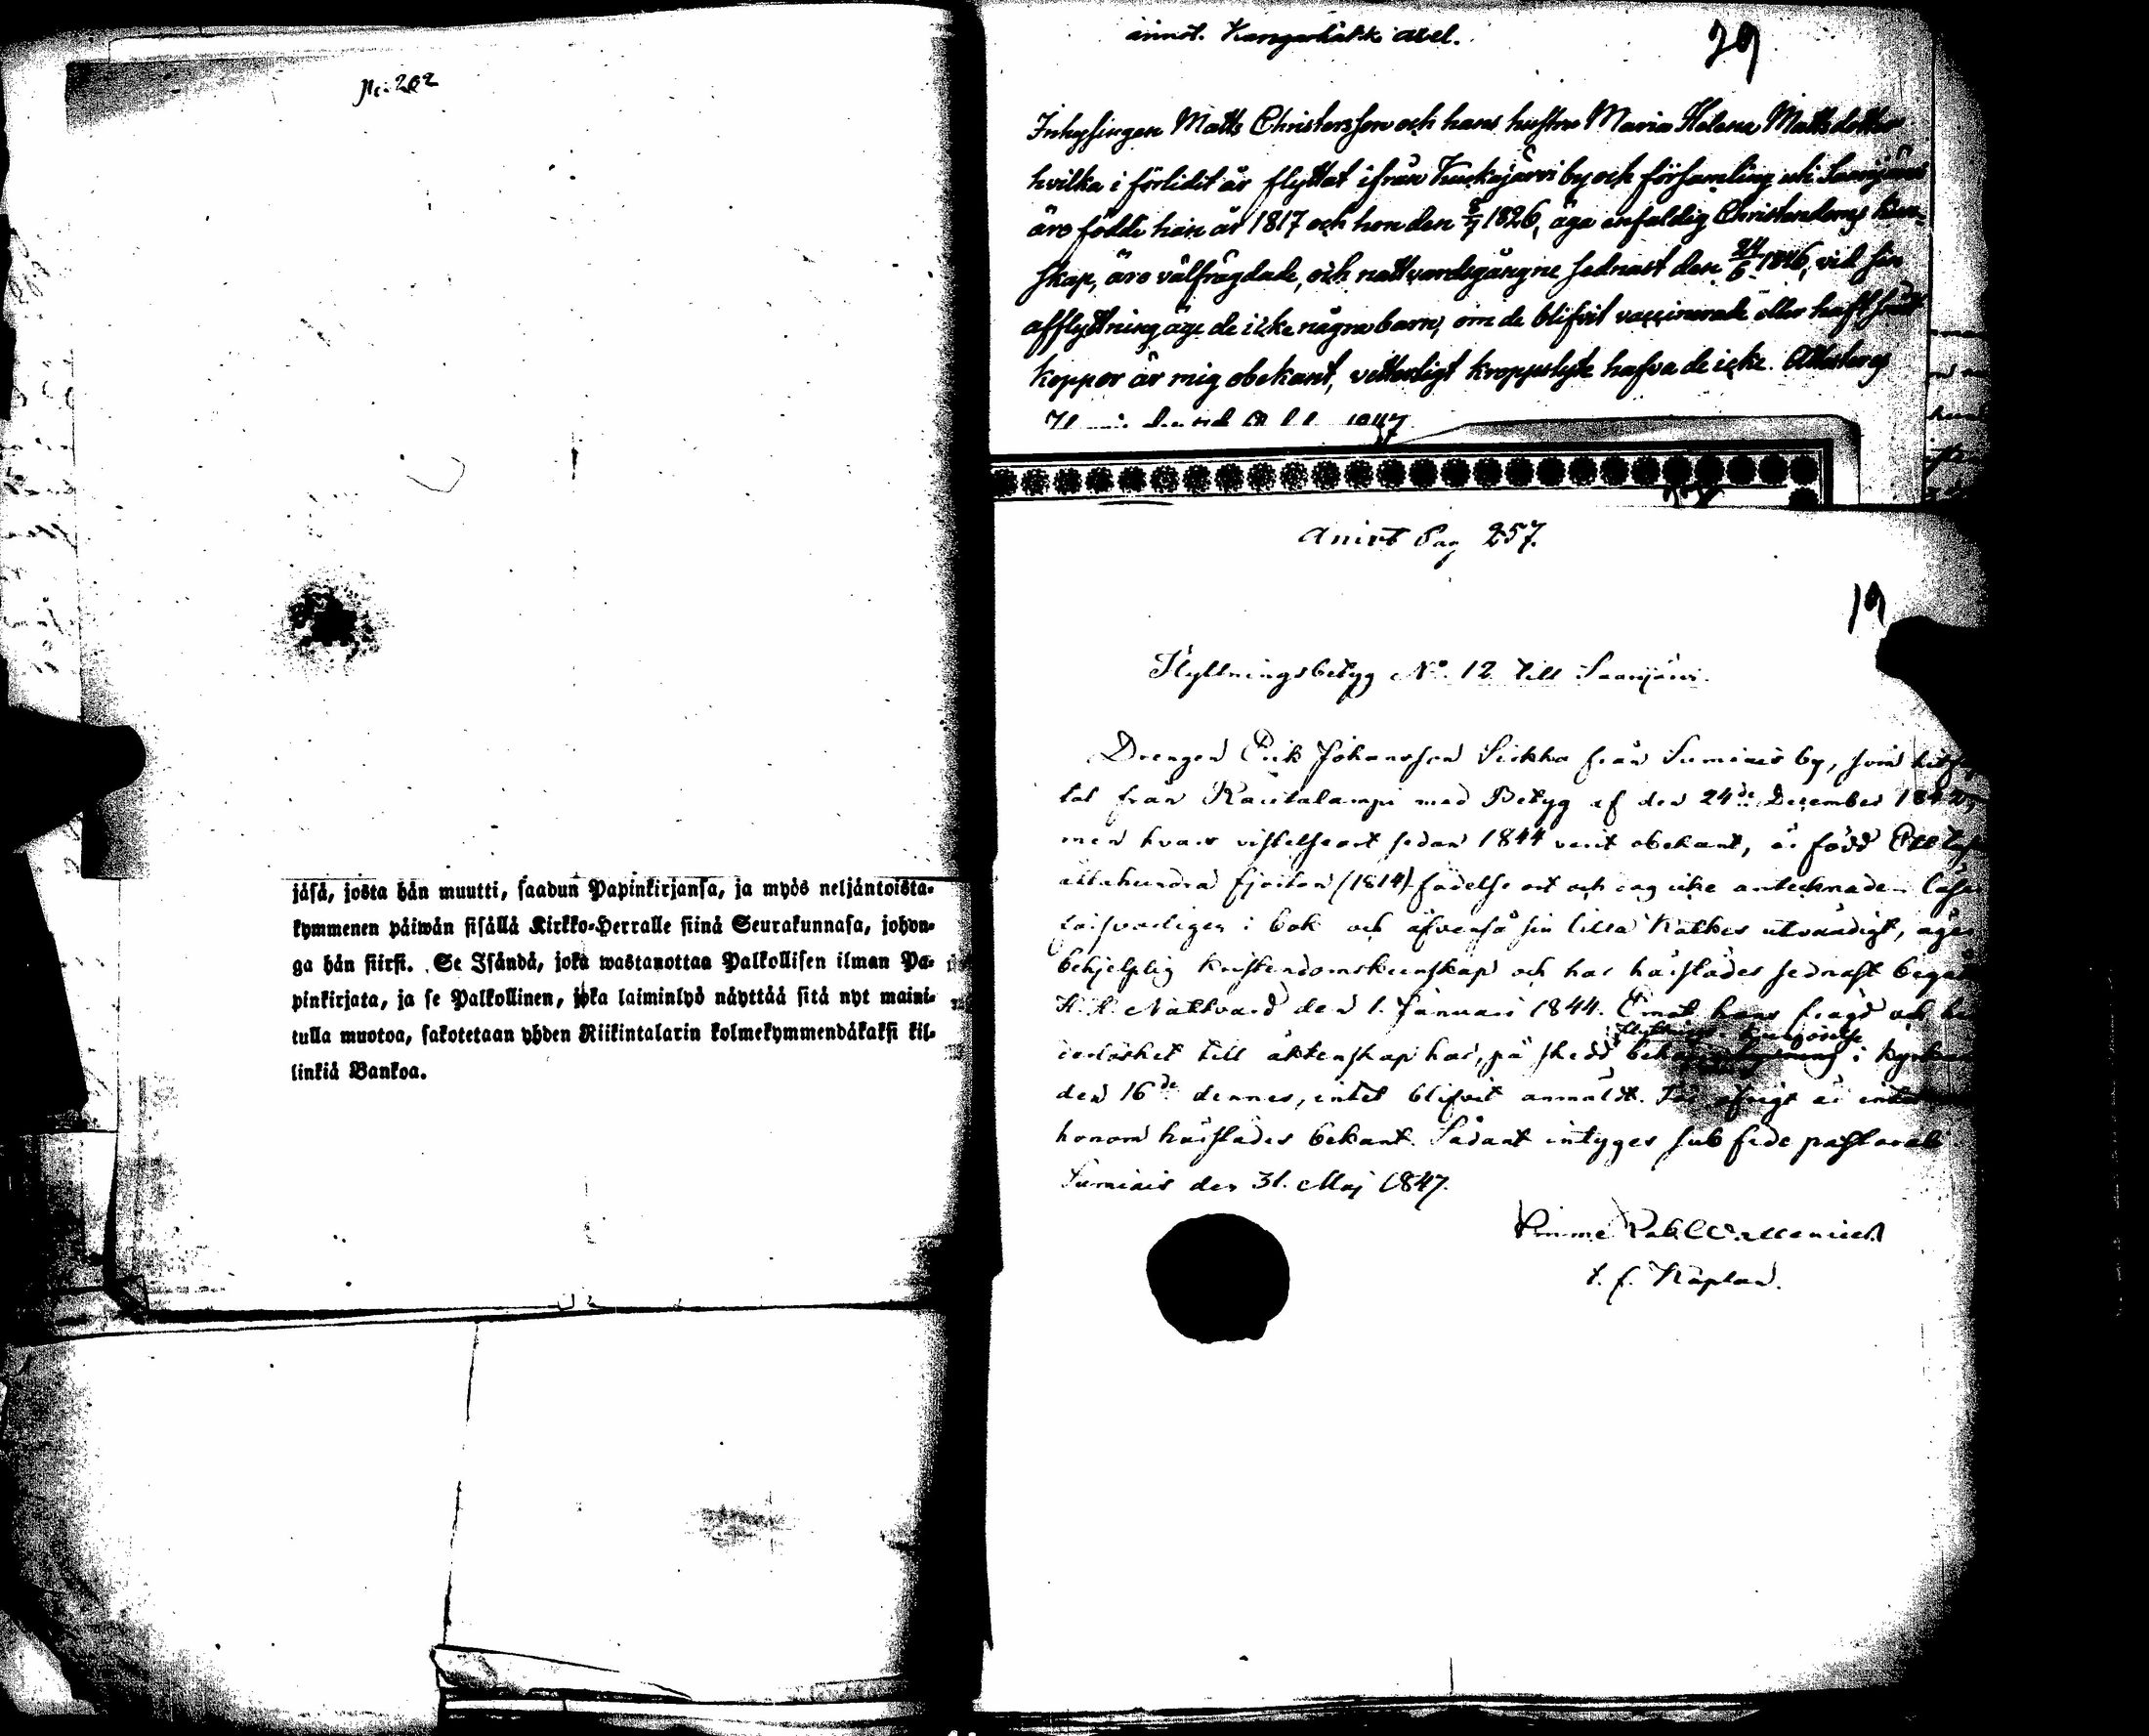 N: 202
jäsä, josta hän muutti, saadun Papinkirjansa, ja myös neljäntoista-
kymmenen päiwän sisällä Kirkko-Herralle siinä Seurakunnasa, johon-
ga hän siirsi. Se Isändä, joka wastanottaa Palkollisen ilman Pa-
pinkirjata, ja se Palkollinen, joka laiminlyö näyttää sitä nyt maini-
tulla muotoa, sakotetaan yhden Riikintalarin kolmekymmendäkaksi kil-
linkiä Bankoa.
annot. Kangashäkki
29
Inhysingen Matts Christersson och hans hustru Maria Helena Mattsdotter
hvilka i förlidit år flyttat ifrån Kuckajärvi by och församling uti Saarijärvi
äro födde han år 1817 och hon den 1826, äga enfaldig Christendoms kun-
skap, äro välfrägdade, och nattvardsgångne sednast den 24/5 1846, vid sin
afflyttning äga de icke några barn, om de blifvit vaccinerade eller haft
koppor är mig obekant, vetterligt kroppslyte hafva de icke. Attesteras
1847
Annot Pag 257.
19
Flyttningsbetyg No. 12 till Saarijärvi.
Drengen Erik Johansson Sirkka från Sumiais by, som
tat från Rautalampi med Betyg af den 24de December
men hvars vistelseort sedan 1844 varit obekant, är född Ett
åttahundra fjorton (1814) födelse ort och dag icke antecknade.
försvarligen i bok och äfvenså sin lilla Katkes utvändigt, äger
behjelplig kristendomskunskap och har härstädes sednast begått
H. H. Nattvard den 1. Januari 1844. Emot hans frägd och
ledighet till äktenskap har, på skedd kungörelse i kyrkan
den 16de dennes, intet blifvit anmäldt. För öfrigt är intet om
honom härstädes bekant. Sådant intyges sub fide pastorali
Sumiais den 31. Maj 1847.
t. f. Kaplan.